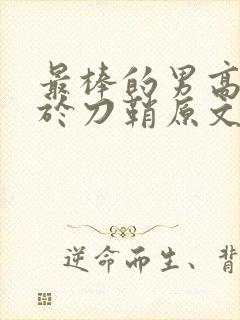 最棒的男高
於刀鞘原文
逆命而生、背